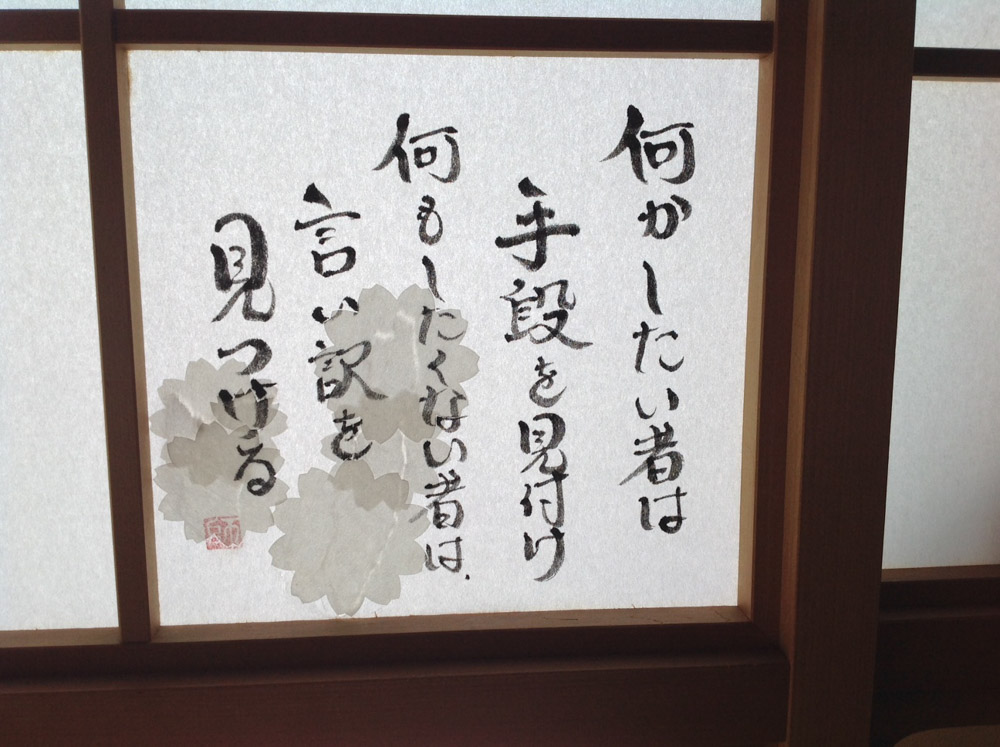 何かしたい者は
手段を見付け
何もしたくない者は、
言い訳を
見つける